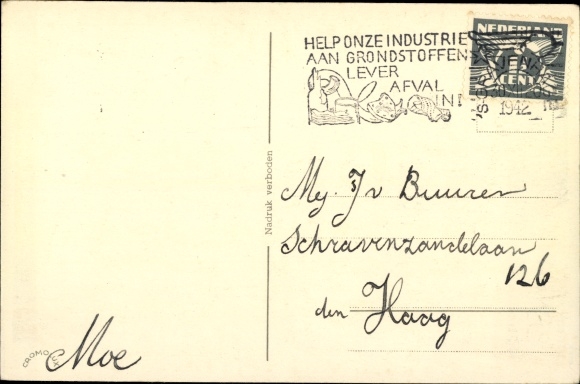 HELP ONZE INDUSTRIE
AAN GRONDSTOFFEN
LEVER
AFVAL
IN!
NEDERLAND
CENT
1942
Nadruk verboden
Mej. J v Buuren
's Gravenzandelaan
126
den Haag
Moe
CROMO